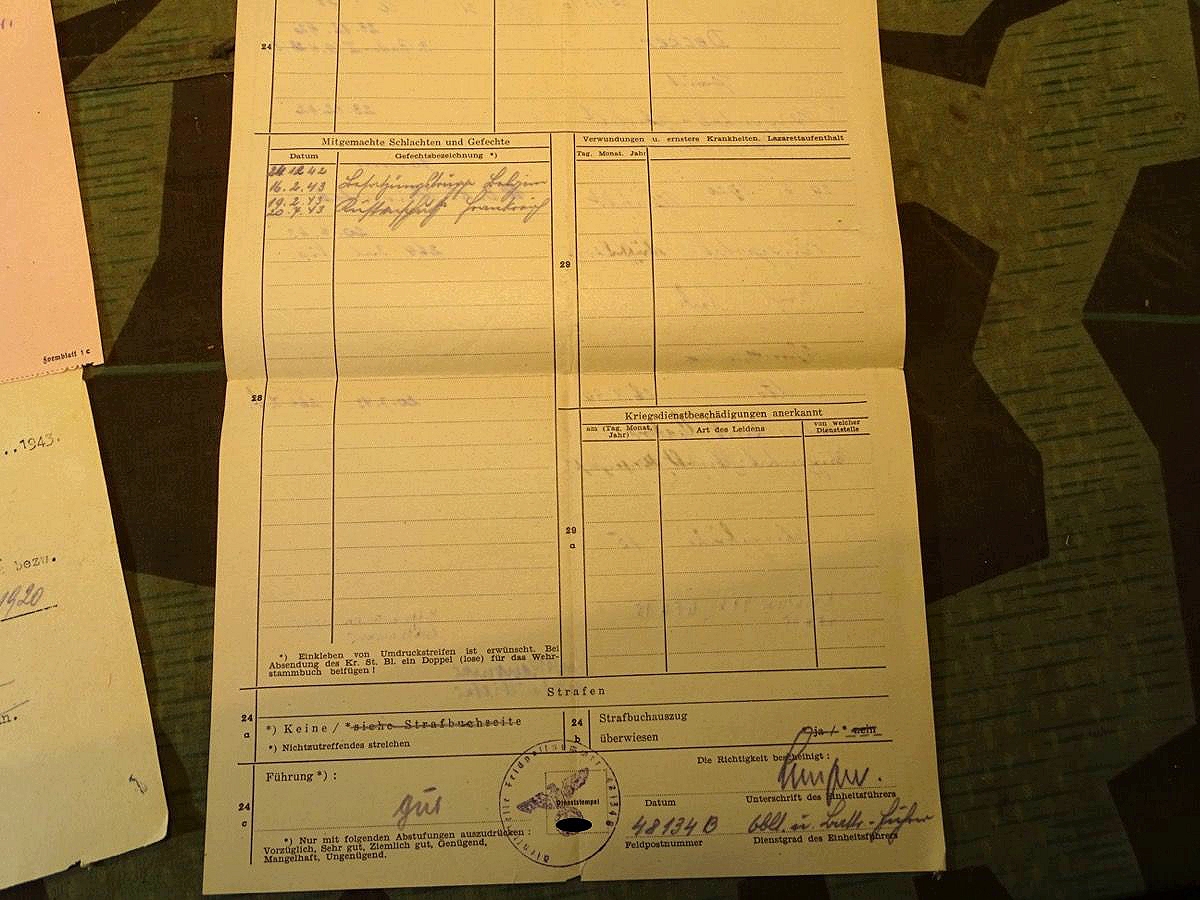 24
Mitgemachte Schlachten und Gefechte
Datum
Gefechtsbezeichnung *)
12 42
16. 2. 43 Besatzungstruppe Belgien
19. 2. 43
20. 7. 43 Küstenschutz Frankreich
28
*) Einkleben von Umdruckstreifen ist erwünscht. Bei
Absendung des Kr. St. Bl. ein Doppel (lose) für das Wehr-
stammbuch beifügen!
Verwundungen u. ernstere Krankheiten. Lazarettaufenthalt
Tag. Monat. Jahr
29
Kriegsdienstbeschädigungen anerkannt
am (Tag, Monat,
Jahr)
Art des Leidens
von welcher
Dienststelle
29
a
Strafen
24
a
*) Keine / *siehe Strafbuchseite
*) Nichtzutreffendes streichen
24
b
Strafbuchauszug
überwiesen
ja / * nein
24
c
Führung *) :
gut
*) Nur mit folgenden Abstufungen auszudrücken :
Vorzüglich, Sehr gut, Ziemlich gut, Genügend,
Mangelhaft, Ungenügend.
Dienststempel
Die Richtigkeit bescheinigt :
Datum
Unterschrift des Einheitsführers
48134 B
Oblt. u. Battr.-Führer
Feldpostnummer
Dienstgrad des Einheitsführers
Formblatt 1 c
..1943.
bezw.
1920
n.